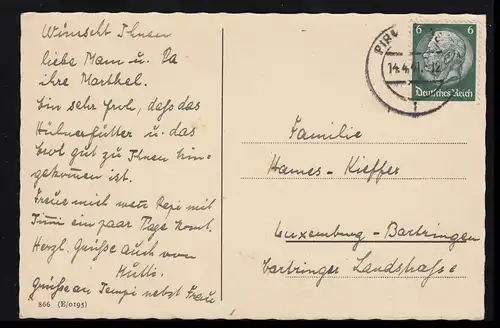 Wünscht Ihnen
liebe Mam u. Pa
ihre Marthel.
Bin sehr froh, daß das
Hühnerfutter u. das
Brot gut zu Ihnen hin-
gekommen ist.
Freue mich wenn Pepi mit
ein paar Tage komt.
Herzl. Grüße auch von
Mutti.
Grüße an Tempi nebst Frau
866 (E/0195)
PIR
14.4.41
6 6
Deutsches Reich
Familie
Hames-Kieffer
Luxemburg-Bartringen
Bartringer Landstraße